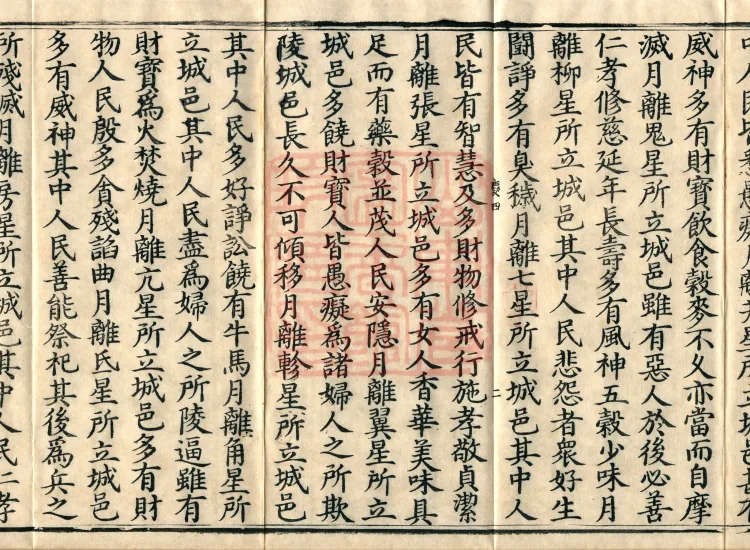 威神多有財寶飲食穀麥不乆亦當而自摩
滅月離鬼星所立城邑雖有惡人於後必善
仁孝修慈延年長壽多有風神五穀少味月
離柳星所立城邑其中人民悲怨者衆好生
鬪諍多有臭穢月離七星所立城邑其中人
四 二
民皆有智慧及多財物修戒行施孝敬貞潔
月離張星所立城邑多有女人香華美味具
足而有藥穀並茂人民安隱月離翼星所立
城邑多饒財寶人皆愚癡爲諸婦人之所欺
陵城邑長久不可傾移月離軫星所立城邑
其中人民多好諍訟饒有牛馬月離角星所
立城邑其中人民盡爲婦人之所陵逼雖有
財寶爲火焚燒月離亢星所立城邑多有財
物人民殷多貪殘諂曲月離氐星所立城邑
多有威神其中人民善能祭祀其後爲兵之
所殘滅月離房星所立城邑其中人民仁孝